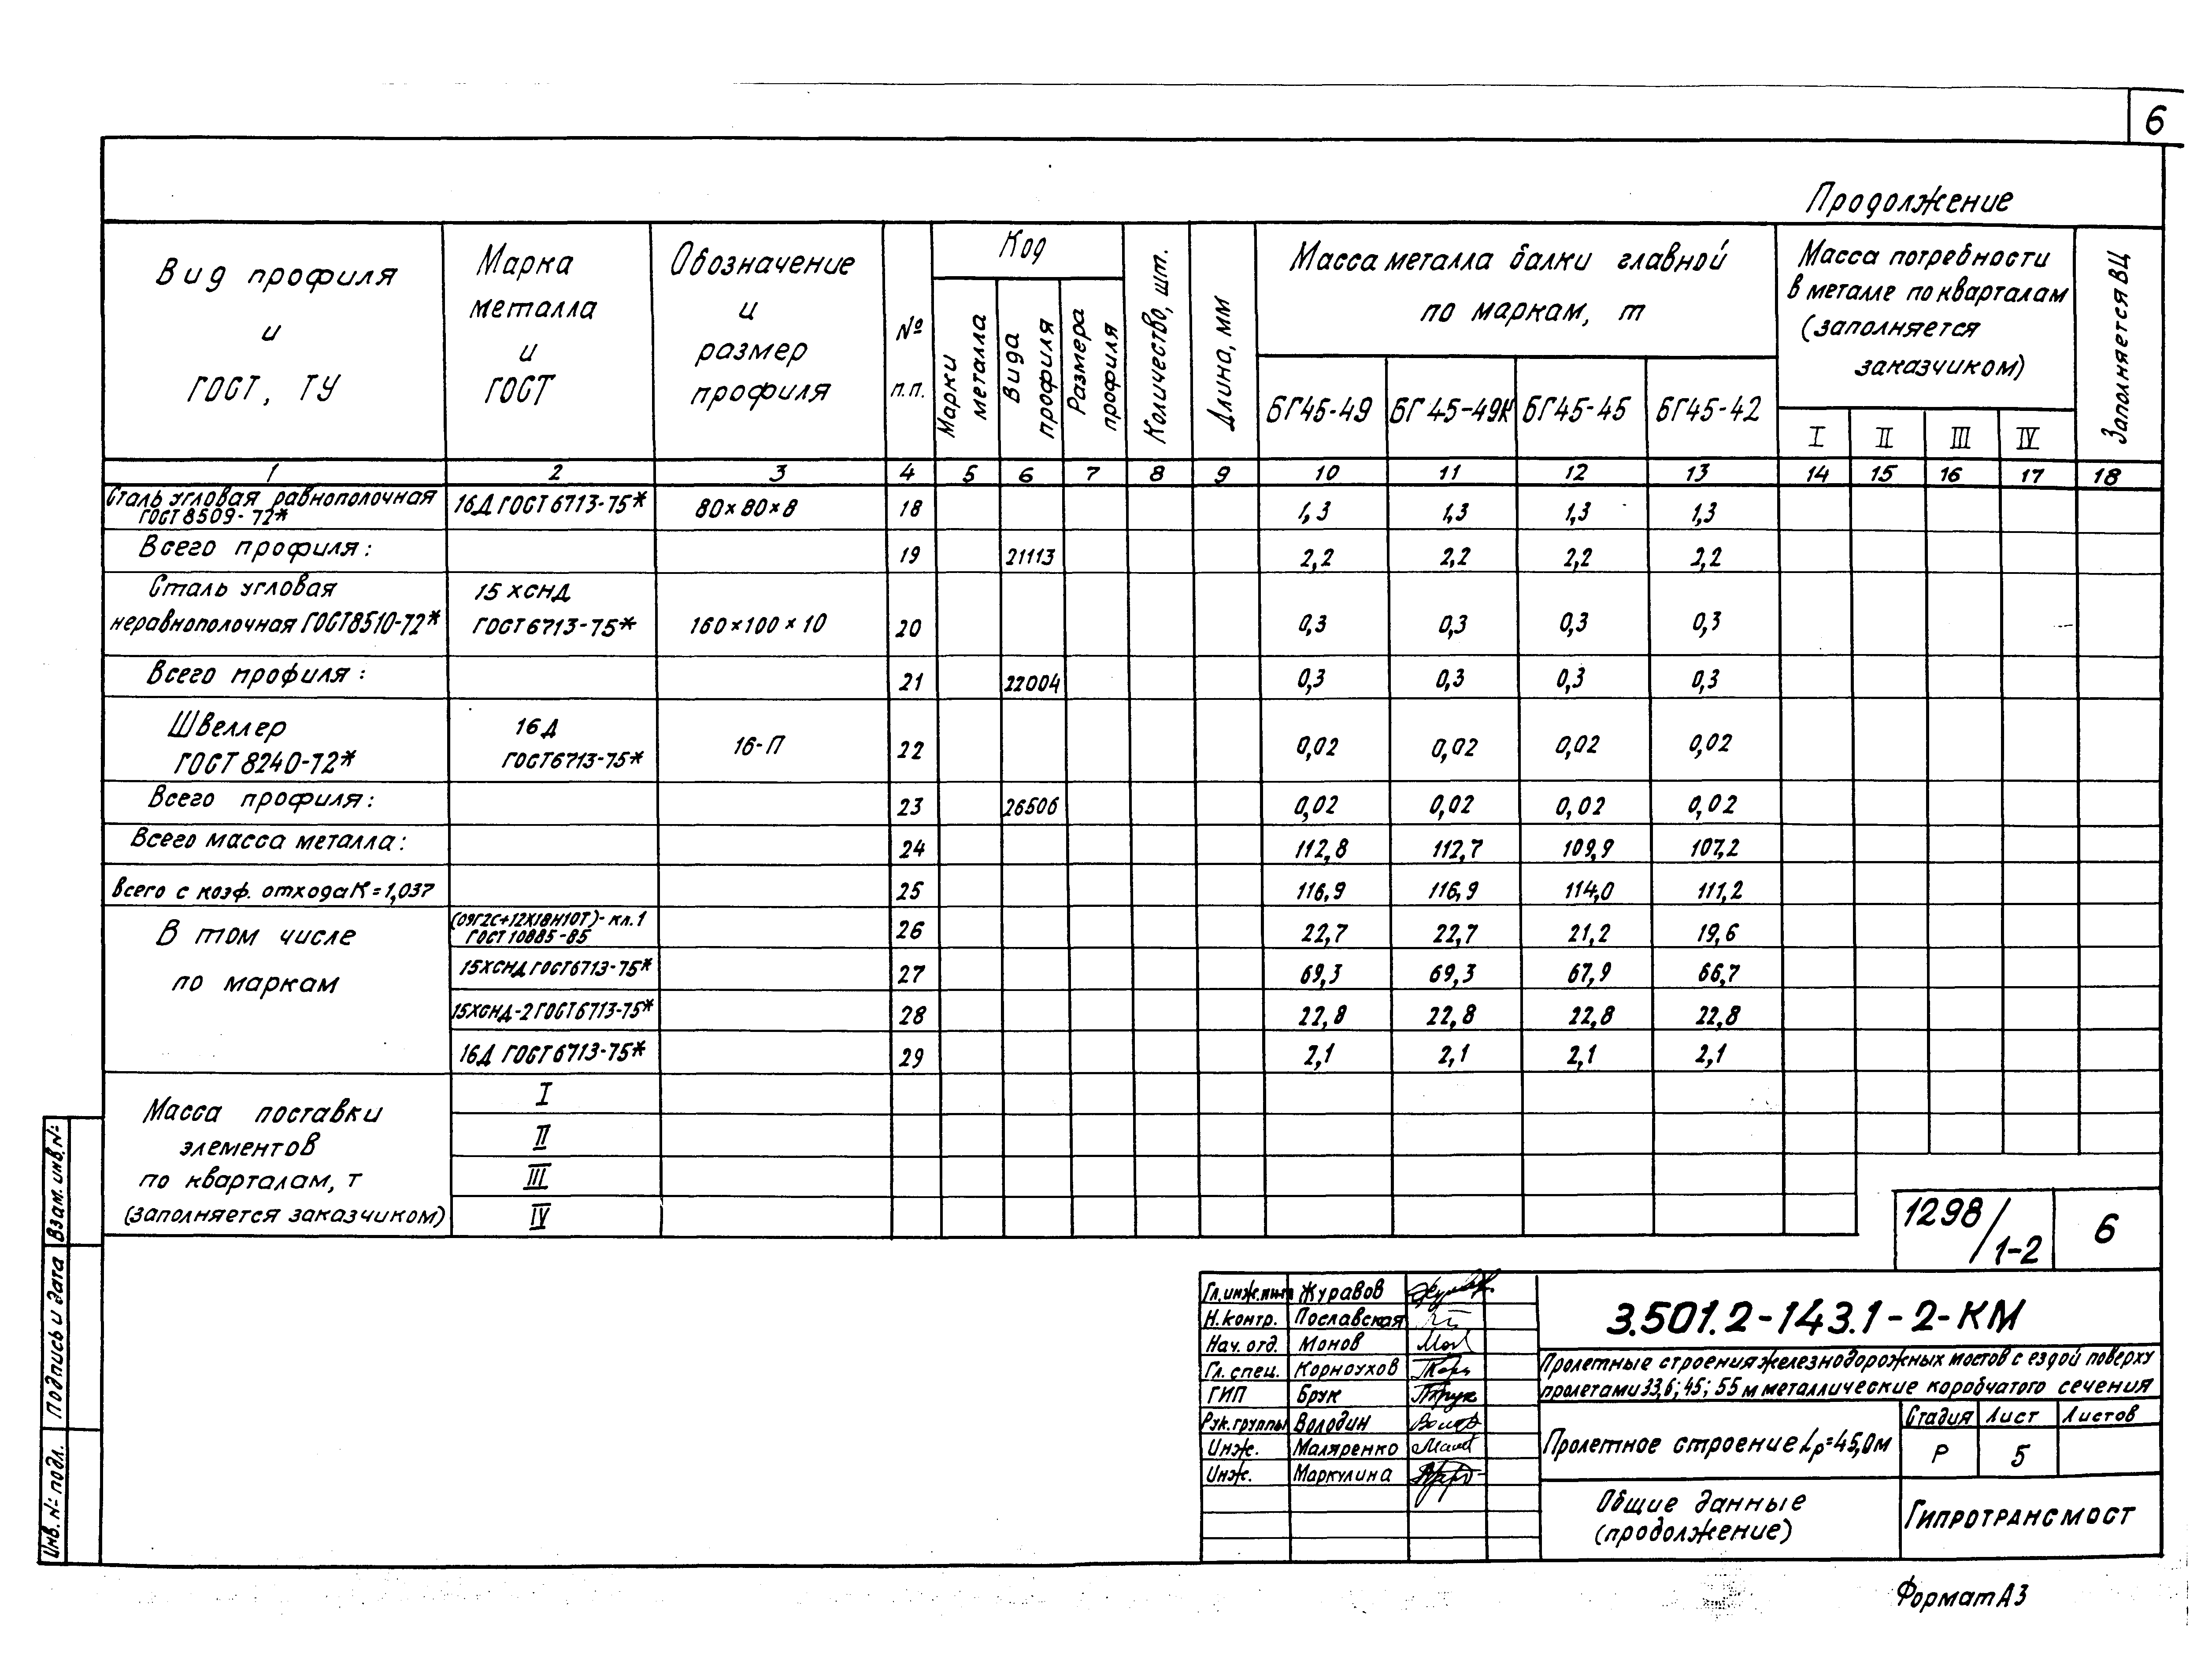 6
Продолжение
Вид профиля
и
ГОСТ, ТУ
Марка
металла
и
ГОСТ
Обозначение
и
размер
профиля
№
п.п.
Код
Марки металла
Вида профиля
Размера профиля
Количество, шт.
Длина, мм
Масса металла балки главной
по маркам, т
БГ45-49 БГ45-49К БГ45-45 БГ45-42
Масса потребности
в металле по кварталам
(заполняется
заказчиком)
I II III IV
Заполняется ВЦ
1 2 3 4 5 6 7 8 9 10 11 12 13 14 15 16 17 18
Сталь угловая равнополочная
ГОСТ 8509-72*
16Д ГОСТ 6713-75* 80×80×8 18 1,3 1,3 1,3 1,3
Всего профиля: 19 21113 2,2 2,2 2,2 2,2
Сталь угловая
неравнополочная ГОСТ8510-72*
15 ХСНД
ГОСТ 6713-75* 160×100×10 20 0,3 0,3 0,3 0,3
Всего профиля: 21 22004 0,3 0,3 0,3 0,3
Швеллер
ГОСТ 8240-72*
16Д
ГОСТ6713-75* 16-П 22 0,02 0,02 0,02 0,02
Всего профиля: 23 26506 0,02 0,02 0,02 0,02
Всего масса металла: 24 112,8 112,7 109,9 107,2
Всего с коэф. отхода К=1,037 25 116,9 116,9 114,0 111,2
В том числе
по маркам
(09Г2С+12Х18Н10Т)-кл.1
ГОСТ 10885-85 26 22,7 22,7 21,2 19,6
15ХСНД ГОСТ6713-75* 27 69,3 69,3 67,9 66,7
15ХСНД-2 ГОСТ6713-75* 28 22,8 22,8 22,8 22,8
16Д ГОСТ 6713-75* 29 2,1 2,1 2,1 2,1
Масса поставки
элементов
по кварталам, т
(заполняется заказчиком)
I
II
III
IV
1298/1-2 6
Взам. инв. №
Подпись и дата
Инв. № подл.
Гл. инж. Журавов
Н. контр. Пославская
Нач. отд. Монов
Гл. спец. Корноухов
ГИП Брук
Рук. группы Володин
Инж. Маляренко
Инж. Маркулина
3.501.2-143.1-2-КМ
Пролетные строения железнодорожных мостов с ездой поверху
пролетами 33,6; 45; 55 м металлические коробчатого сечения
Пролетное строение Lр=45,0м
Стадия Лист Листов
Р 5
Общие данные
(продолжение)
Гипротрансмост
Формат А3